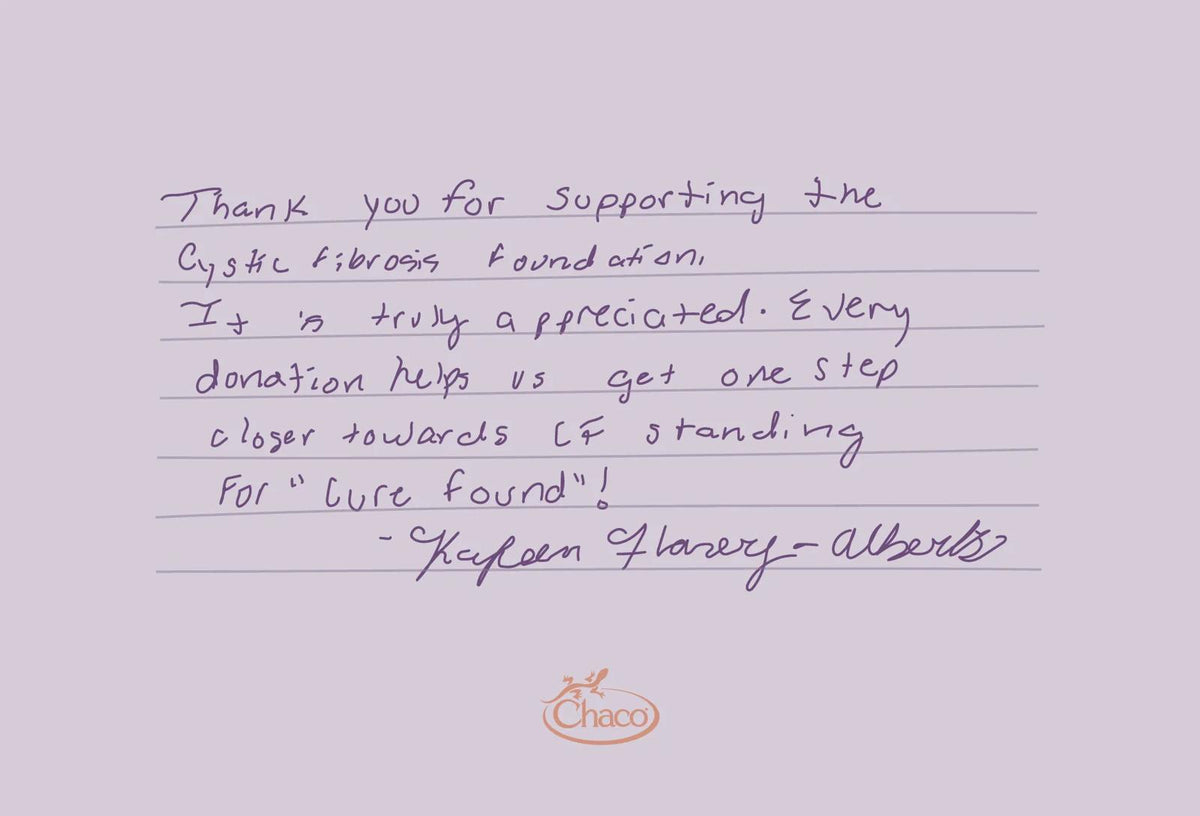 Thank you for supporting the
Cystic Fibrosis Foundation.
It is truly appreciated. Every
donation helps us get one step
closer towards CF standing
For "Cure found"!
- Flanery-Alberts
Chaco